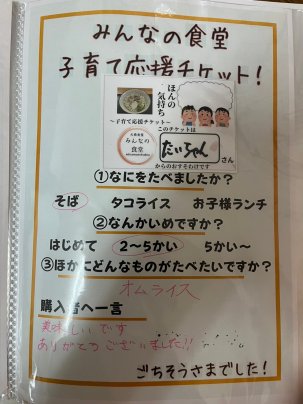 みんなの食堂
子育て応援チケット!
ほんの
気持ち
〜子育て応援チケット〜
このチケットは
みんなの
食堂
たいちゃん さん
からのおすそわけです
①なにをたべましたか?
そば タコライス お子様ランチ
②なんかいめですか?
はじめて 2〜5かい 5かい〜
③ほかにどんなものがたべたいですか?
オムライス
購入者へ一言
美味しいです
ありがとうございました!!
ごちそうさまでした!